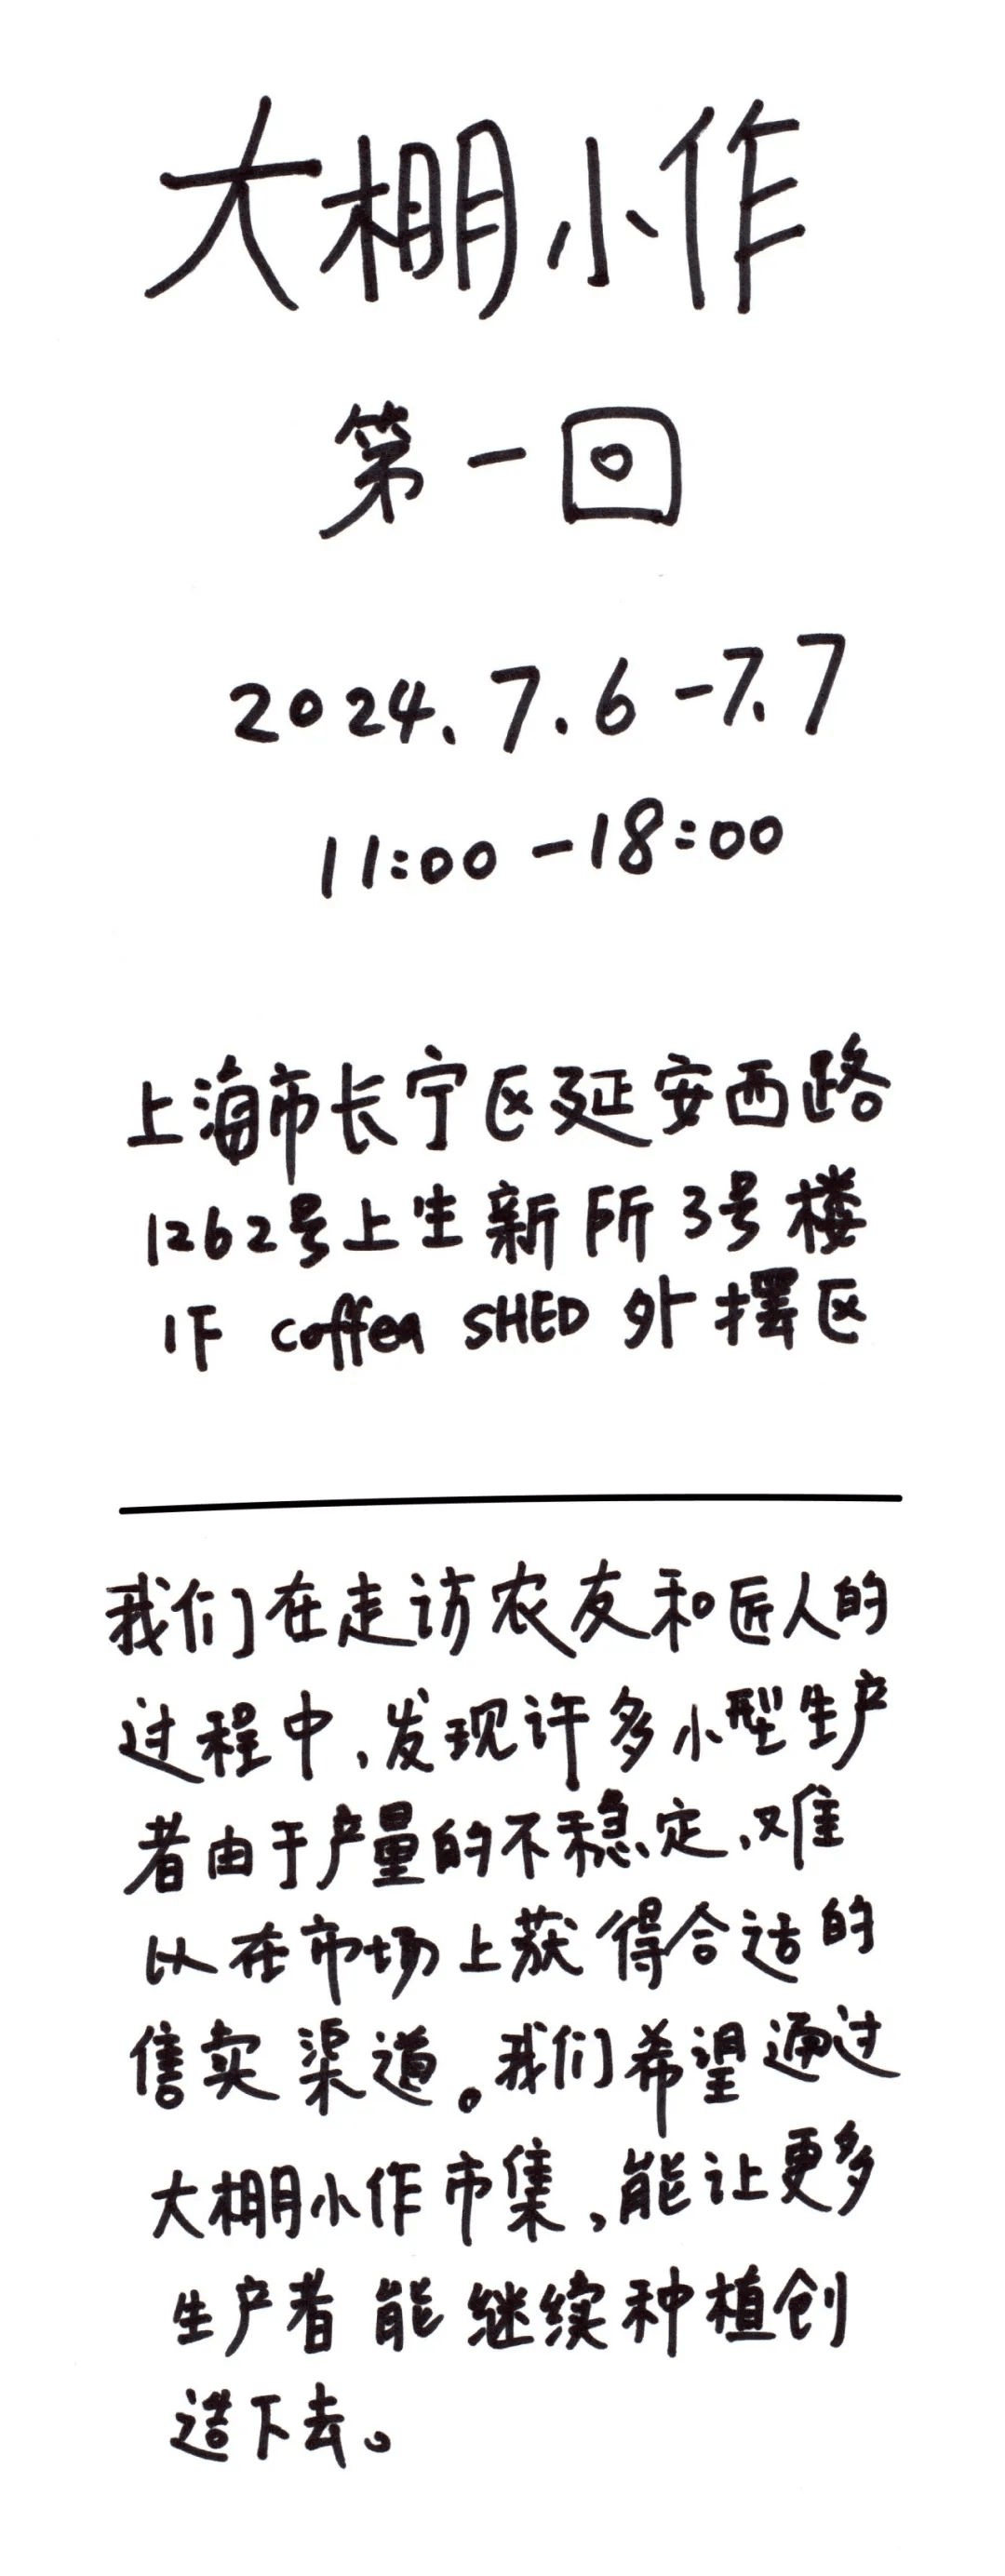 大棚小作
第一回
2024.7.6-7.7
11:00-18:00
上海市长宁区延安西路
1262号上生新所3号楼
1F coffea SHED 外摆区
我们在走访农友和匠人的
过程中,发现许多小型生产
者由于产量的不稳定,难
以在市场上获得合适的
售卖渠道。我们希望通过
大棚小作市集,能让更多
生产者能继续种植创
造下去。